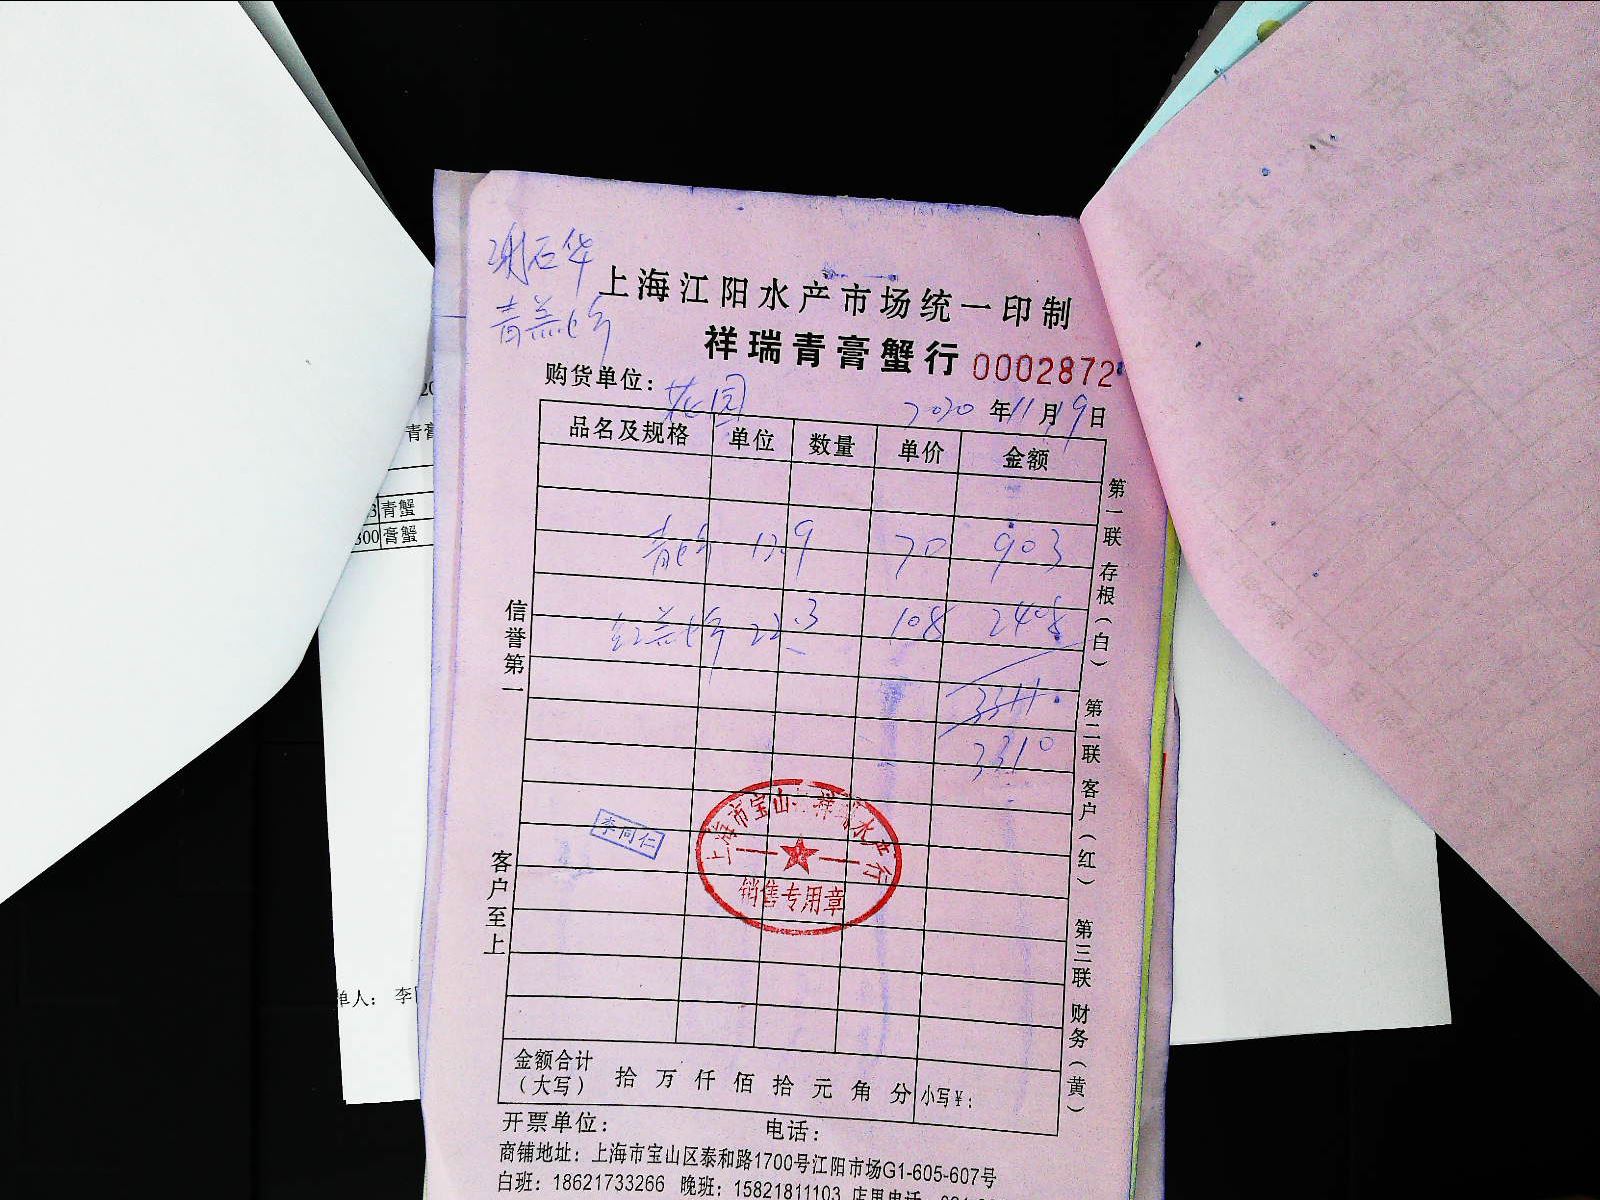 谢石华
青羔蟹
上海江阳水产市场统一印制
祥瑞青膏蟹行 0002872
购货单位：花园 2020年11月19日
品名及规格 单位 数量 单价 金额
青蟹 12.9 70 903
红羔蟹 22.3 108 2408
3311.
3310
李同仁
上海市宝山 祥瑞水产行
销售专用章
信誉第一
客户至上
第一联 存根（白） 第二联 客户（红） 第三联 财务（黄）
金额合计（大写） 拾 万 仟 佰 拾 元 角 分 小写￥：
开票单位： 电话：
商铺地址：上海市宝山区泰和路1700号江阳市场G1-605-607号
白班：18621733266 晚班：15821811103 店里电话
20
青膏
3 青蟹
300 膏蟹
单人： 李